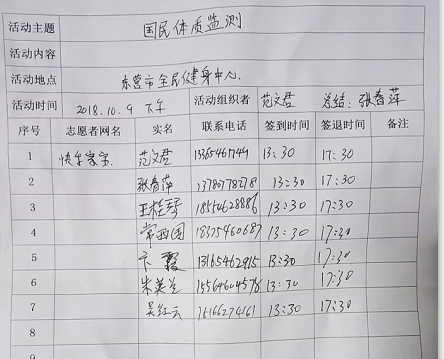 活动主题 国民体质监测
活动内容
活动地点 东营市全民健身中心.
活动时间 2018.10.9 下午 活动组织者 范文君 总结: 张春萍
序号 志愿者网名 实名 联系电话 签到时间 签退时间 备注
1 范文君 13:30 17:30
2 张春萍 13:30 17:30
3 王桂琴 18554628886 13:30 17:30
4 常西国 18375460687 13:30 17:30
5 卞霞 13165462915 13:30 17:30
6 朱美兰 15564604578 13:30 17:30
7 吴红云 13:30 17:30
8